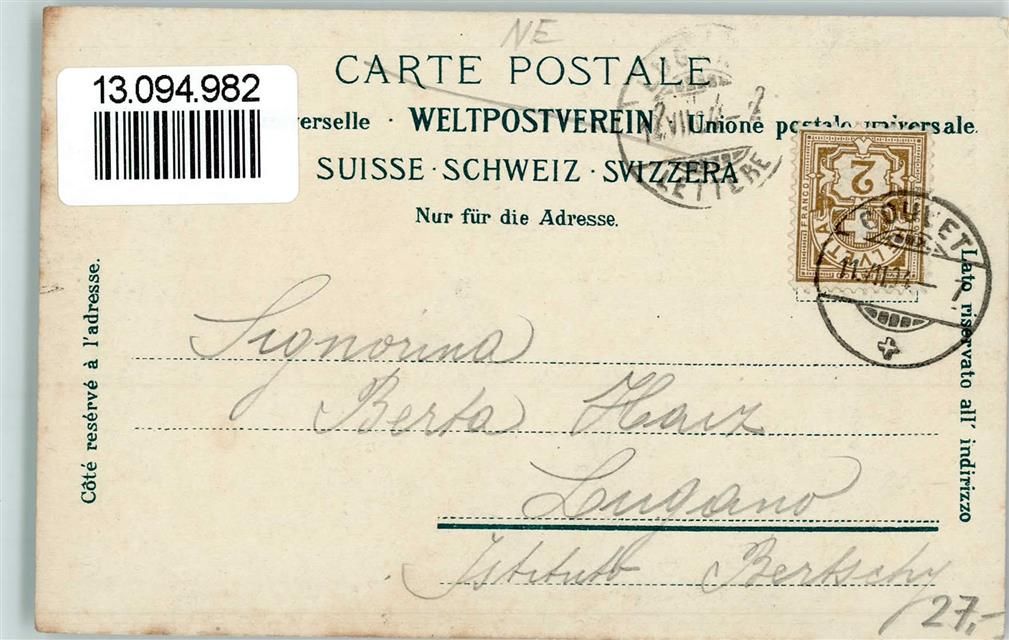 NE
CARTE POSTALE
13.094.982
verselle · WELTPOSTVEREIN · Unione postale universale.
SUISSE · SCHWEIZ · SVIZZERA
LETTERE
Nur für die Adresse.
FRANCO
2
COUVET
11.VII.04
Côté resérvé à l'adresse.
Lato riservato all' indirizzo
Signorina
Berta Haiz
Lugano
Istituto Bertschy
27,-